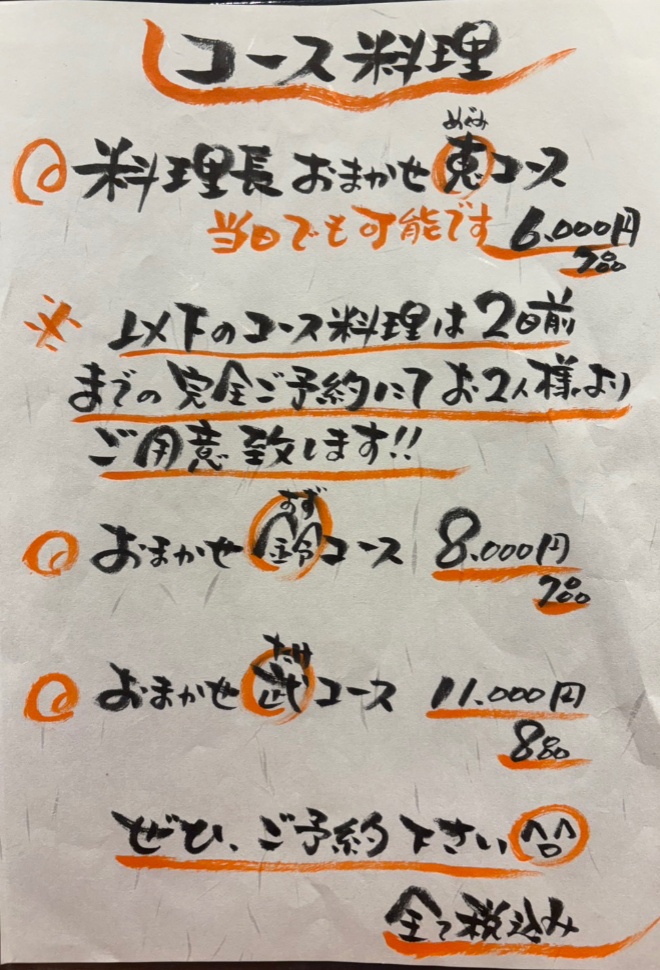 コース料理
めぐみ
料理長おまかせ恵コース
当日でも可能です 6.000円
7品
※以下のコース料理は2日前
までの完全ご予約にてお2人様より
ご用意致します!!
すず
おまかせ鈴コース 8.000円
7品
たけ
おまかせ武コース 11.000円
8品
ぜひ、ご予約下さい
全て税込み